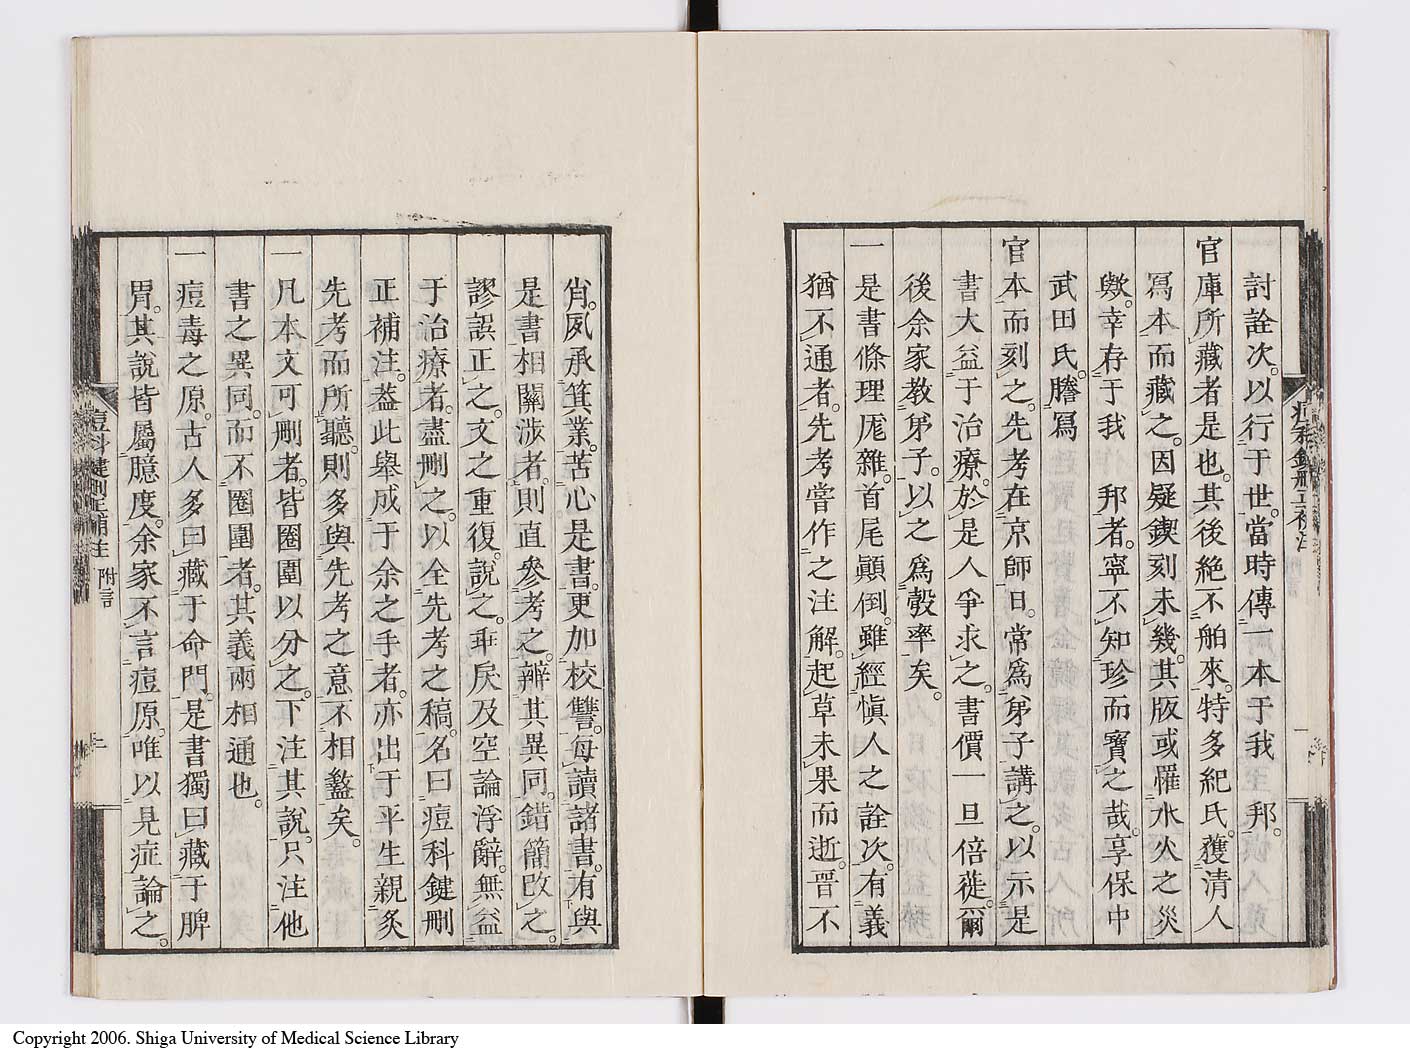 討詮次。以行于世。當時傳一本于我 邦。
官庫所藏者是也。其後絕不舶來。特多紀氏。獲清人
寫本而藏之。因疑鍥刻未幾。其版或罹水火之災
歟。幸存于我 邦者。寧不知珍而寶之哉。享保中
武田氏。謄寫
官本而刻之。先考在京師日。常爲弟子講之。以示是
書大益于治療。於是人爭求之。書價一旦倍蓰。爾
後余家教弟子。以之爲彀率矣。
一是書條理厖雜。首尾顚倒。雖經愼人之詮次。有義
猶不通者。先考嘗作之注解。起草未果而逝。晋不
肖。夙承箕業。苦心是書。更加校讐。每讀諸書。有與
是書相關涉者。則直參考之。辨其異同。錯簡改之。
謬誤正之。文之重復。說之乖戾及空論浮辭。無益
于治療者。盡刪之。以全先考之稿。名曰痘科鍵刪
正補注。蓋此舉成于余之手者。亦出于平生親炙
先考而所聽。則多與先考之意不相盭矣。
一凡本文可刪者。皆圈圍以分之。下注其說。只注他
書之異同。而不圈圍者。其義兩相通也。
一痘毒之原。古人多曰藏于命門。是書獨曰藏于脾
胃。其說皆屬臆度。余家不言痘原。唯以見症論之。
痘科鍵刪正補注 附言 二
Copyright 2006. Shiga University of Medical Science Library